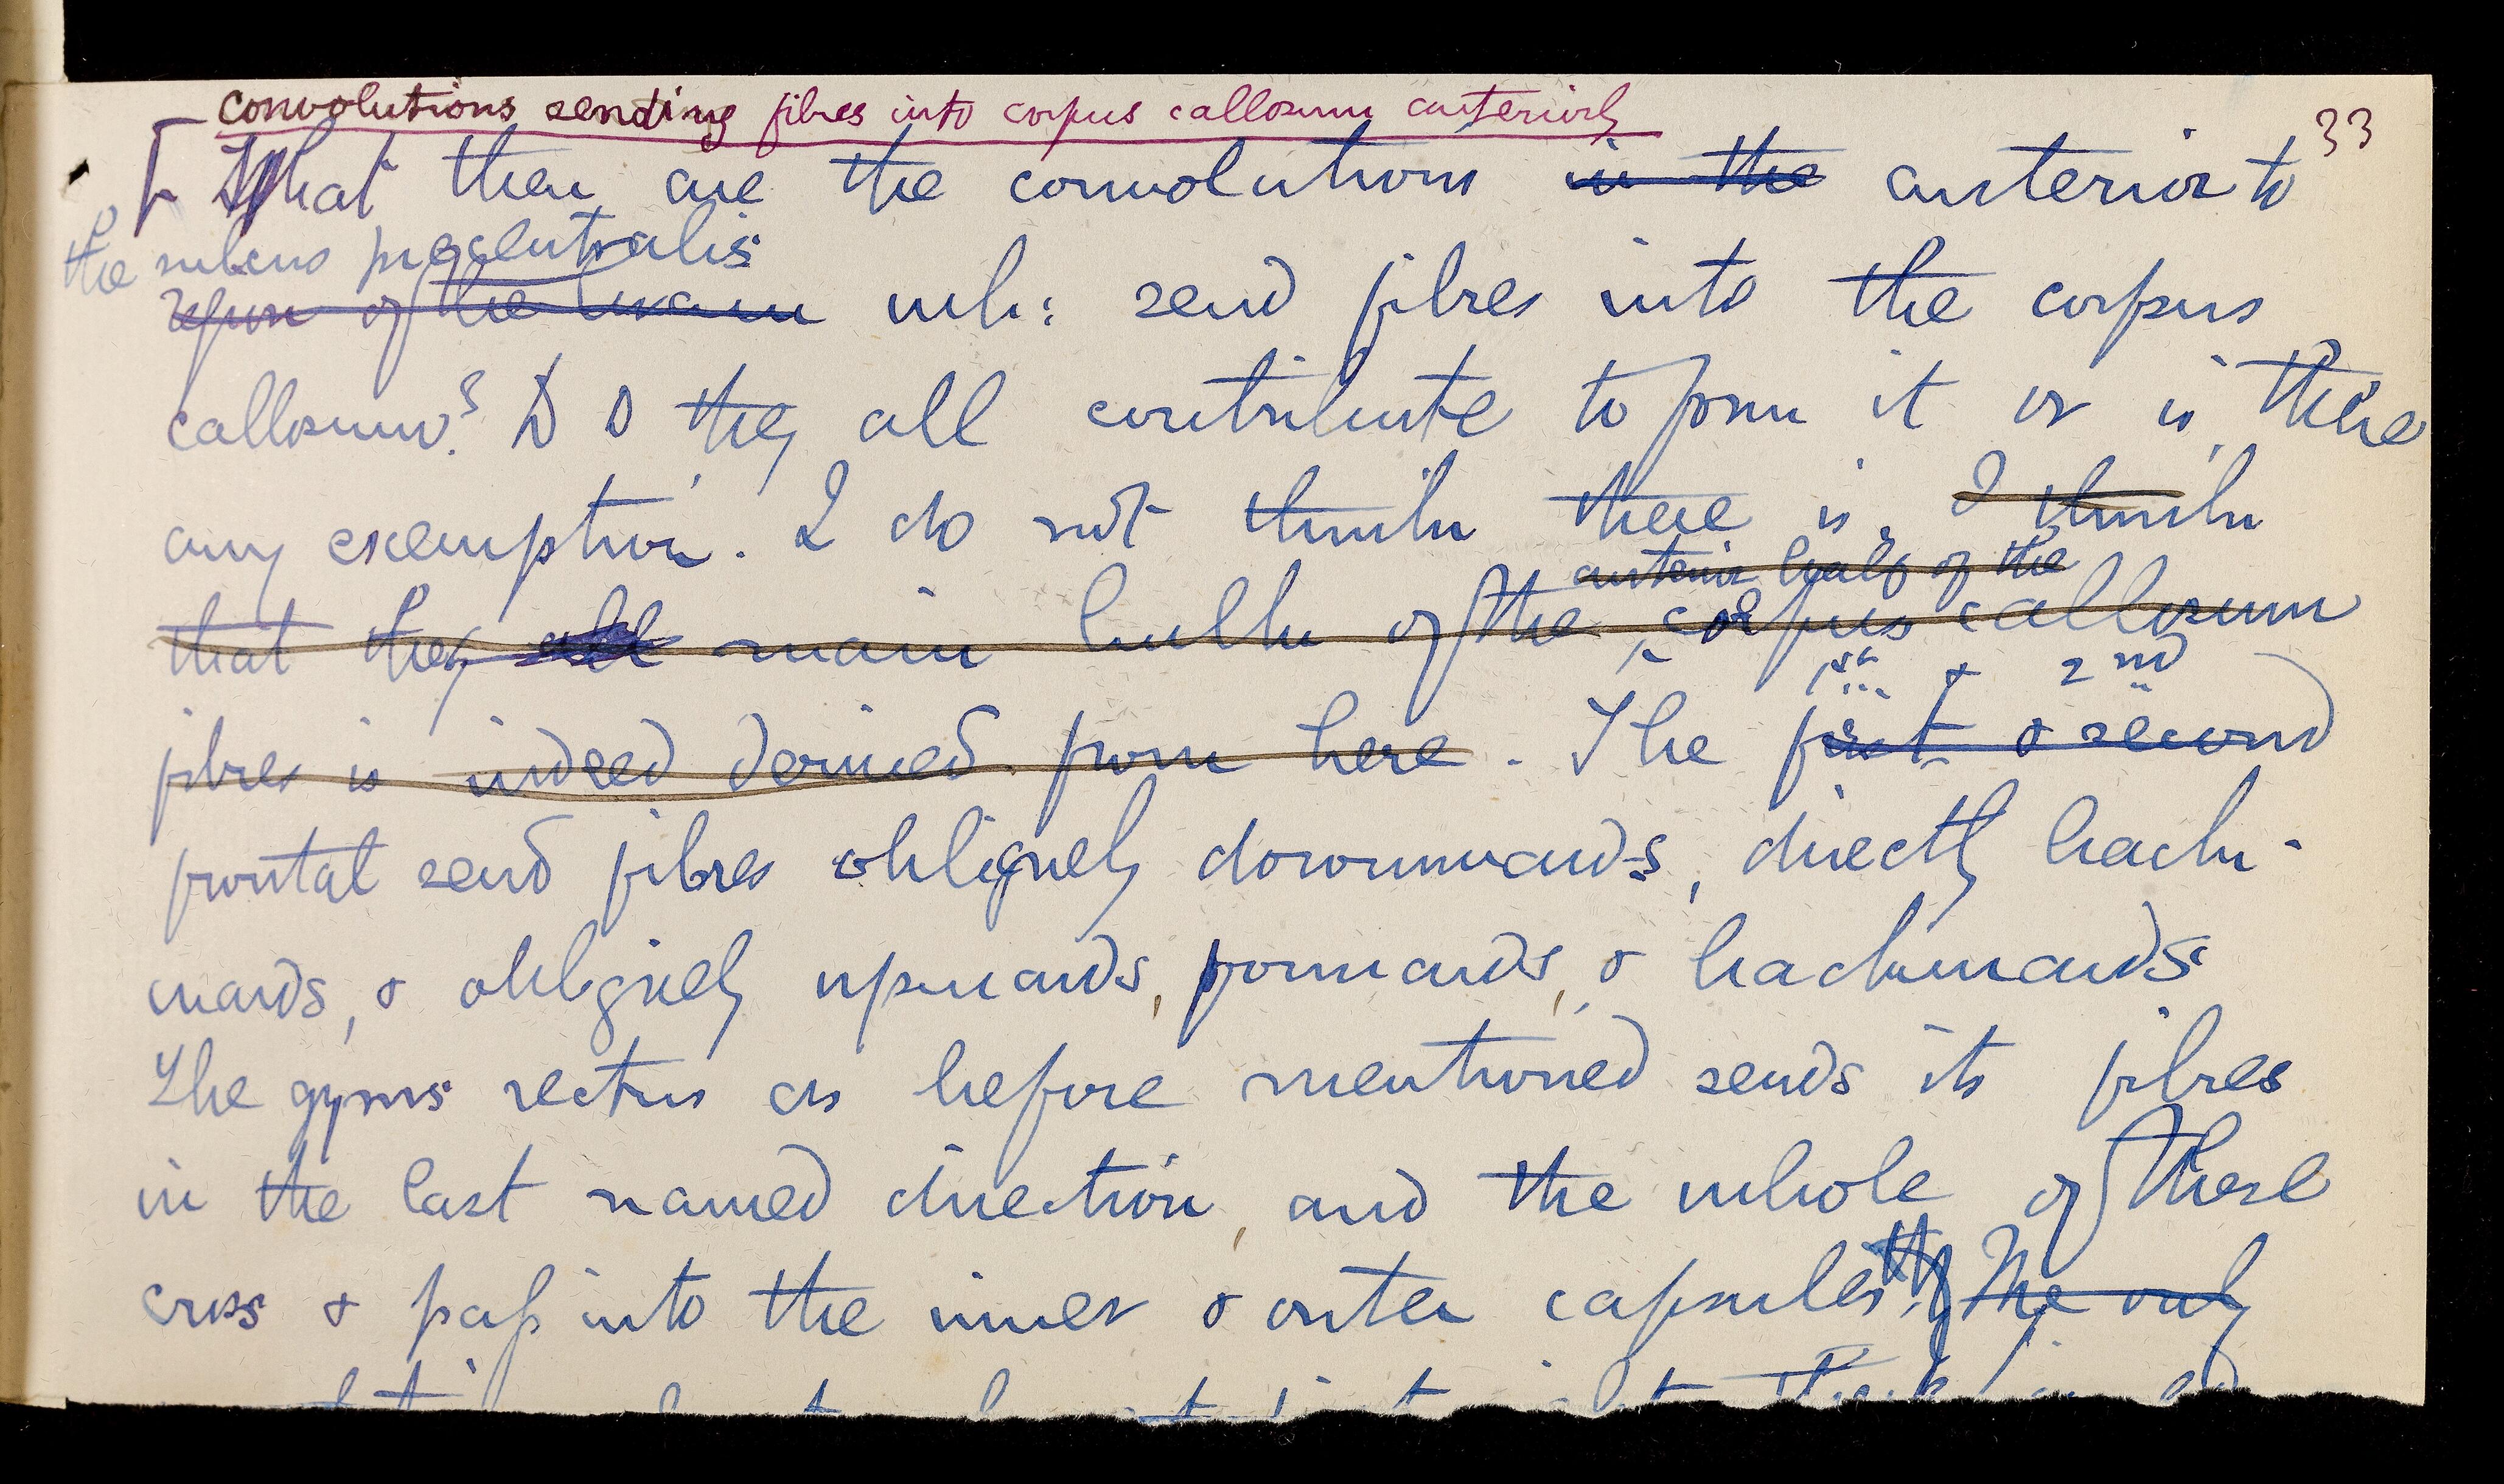 convolutions sending fibres into corpus callosum anteriorly
33
[ What then are the convolutions in the anterior to
the sulcus precentralis
region of the brain wh: send fibres into the corpus
callosum? Do they all contribute to form it or is there
any exemption. I do not think there is. I think
anterior half of the
that they all main bulk of the corpus callosum
1st & 2nd
fibres is indeed derived from here. The first & second
frontal send fibres obliquely downwards, directly back-
wards, & obliquely upwards, forwards, & backwards
The gyrus rectus as before mentioned sends its fibres
in the last named direction, and the whole of these
cross & pass into the inner & outer capsules. The only